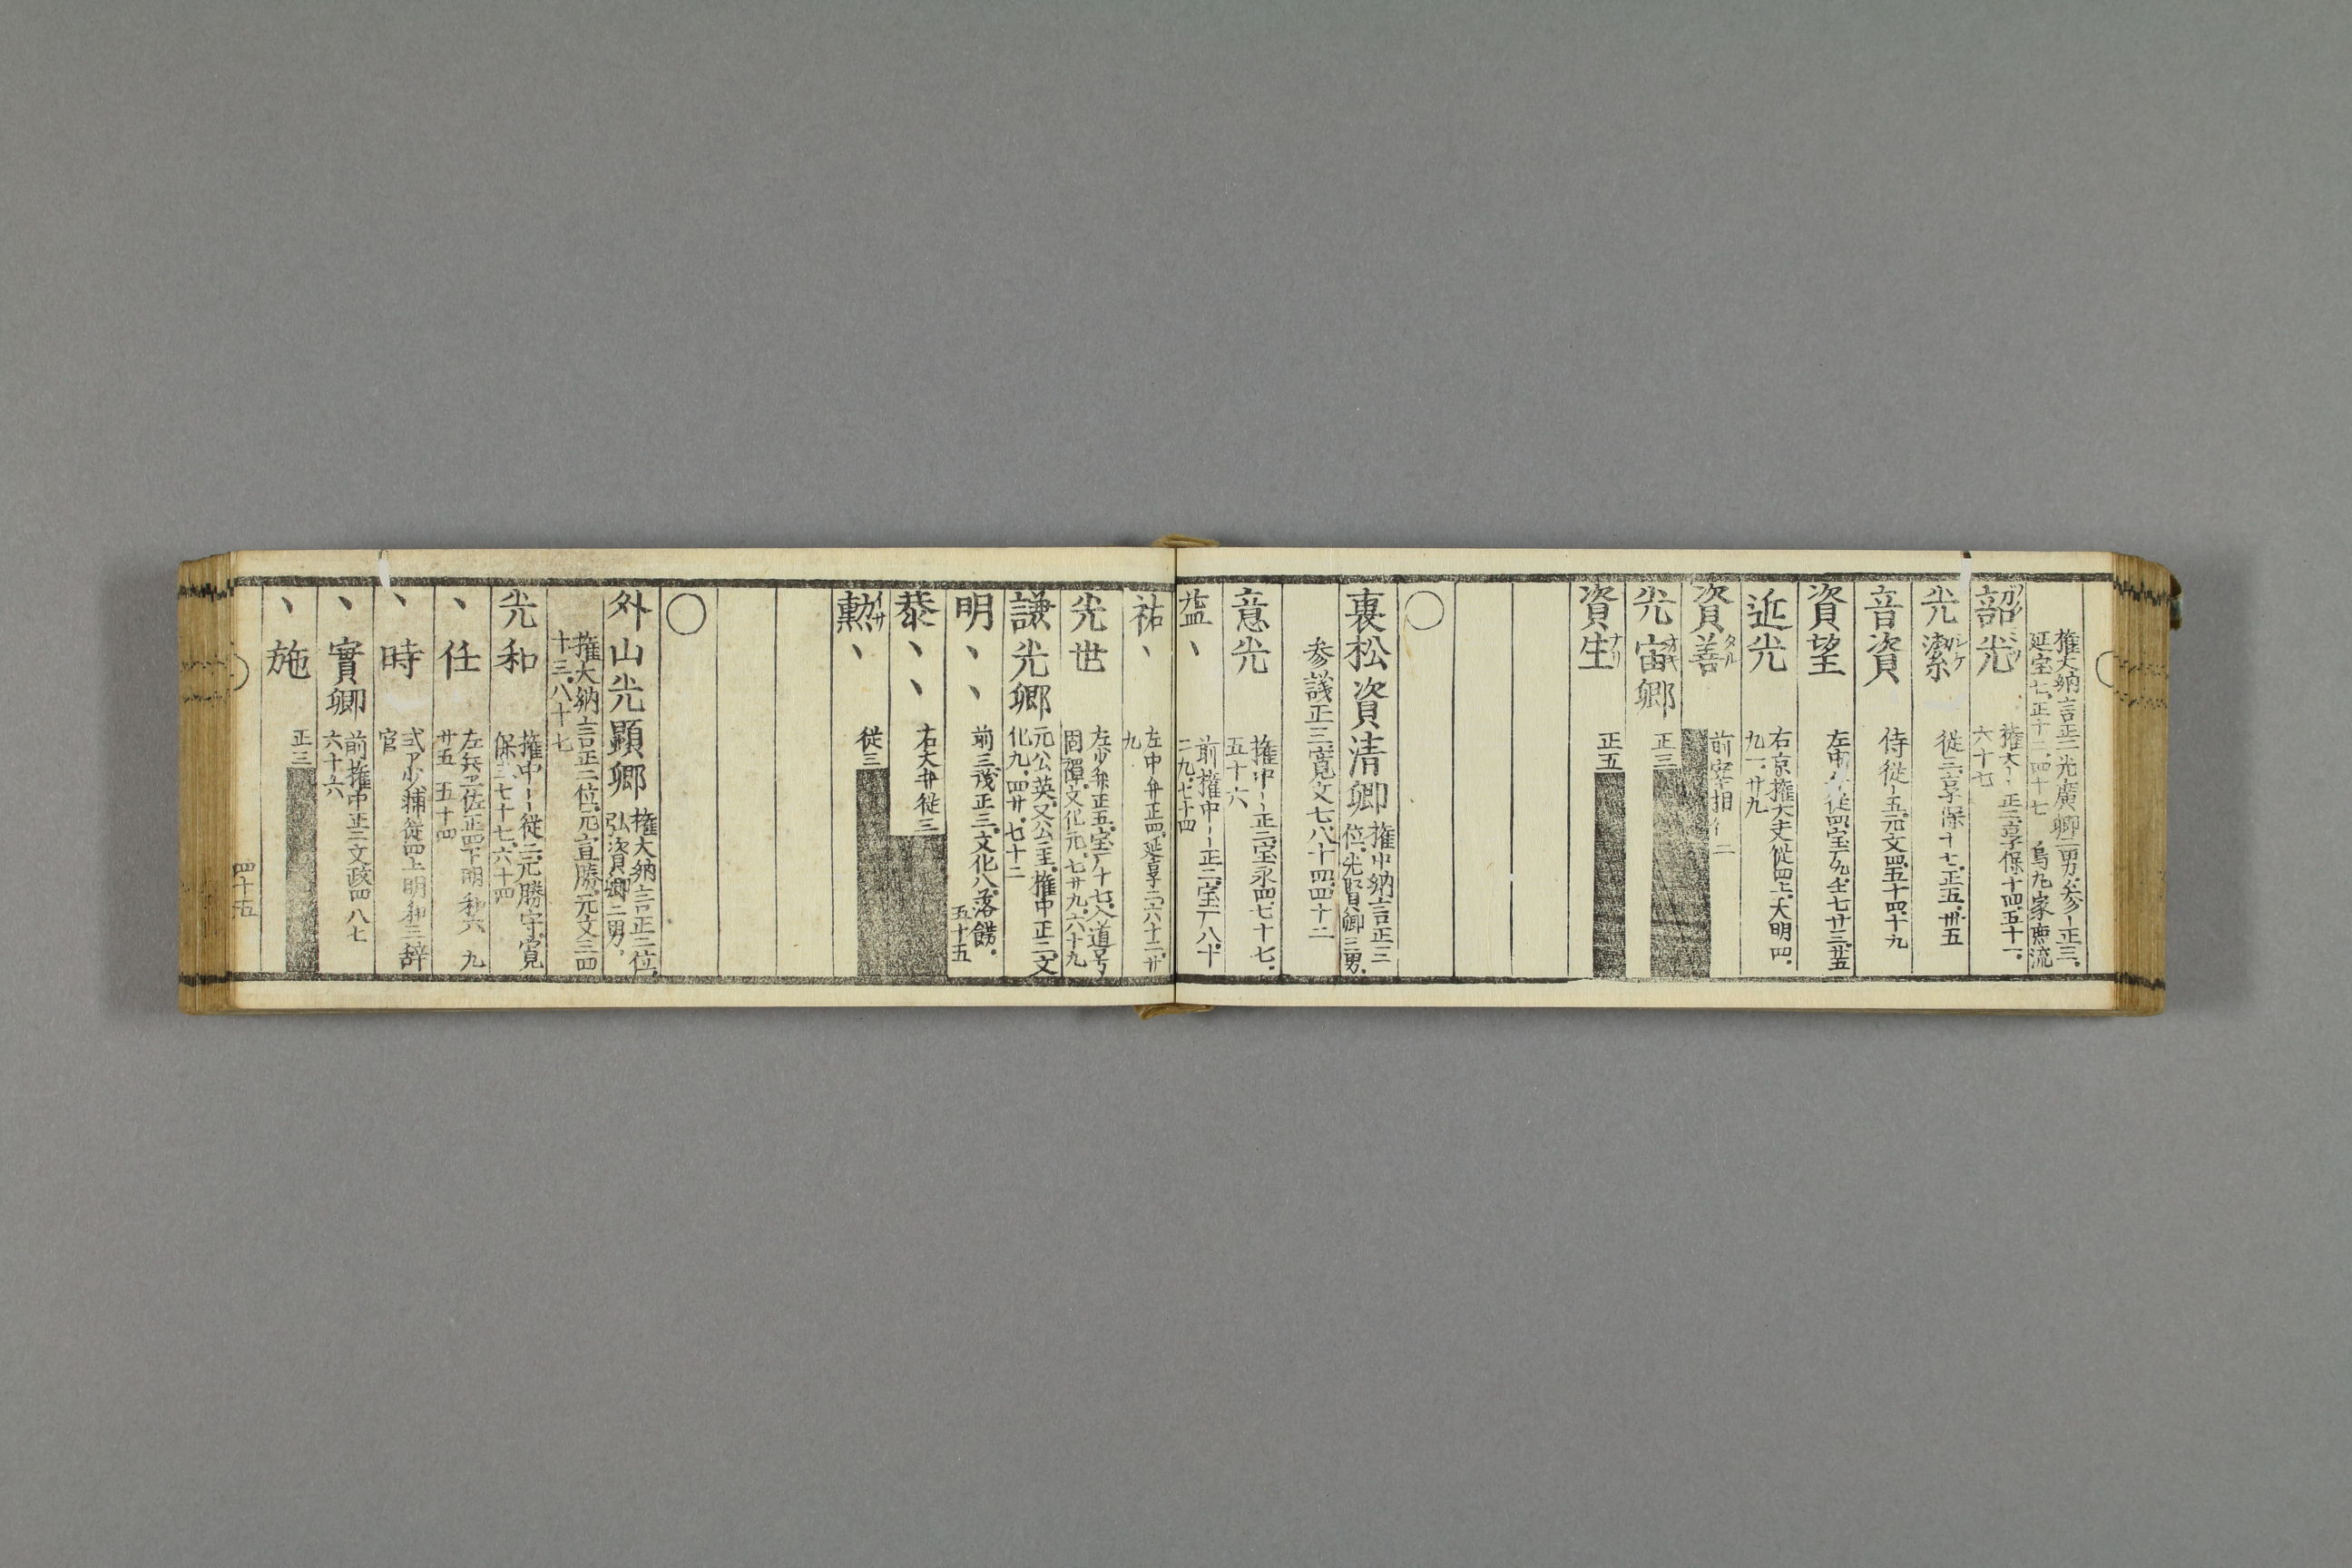 権大納言正二光廣卿二男父参ー正三
延宝七正十二四十七 烏丸家庶流
韶光 権大ー正二享保十四五十一
六十七
光潔 従三享保十七正五卅五
音資 侍従ー五元文四五十四十九
資望 左中弁従四宝厂九壬七廿三廿五
近光 右京権大夫従四上天明四
九一廿九
資善 前宰相正二
光宙卿 正三
資生 正五
○
裏松資清卿 権中納言正三
位光賢卿三男
参議正三寛文七八十四四十二
意光 権中ー正二宝永四七十七
五十六
益丶 前権中ー正二宝厂八十
二九七十四
祐丶 左中弁正四延享三六十二廿
九
光世 左少弁正五宝厂十七入道号
固禅文化元七廿九六十九
謙光卿 元公英又公圭権中正二文
化九四廿七十二
明丶丶 前三議正三文化八落餝
五十五
恭丶丶 右大弁従三
勲丶 従三
○
外山光顕卿 権大納言正二位
弘資卿二男
権大納言正二位元宣勝元文三四
十三八十七
光和 権中ー従二元勝守寛
保三七十七六十四
丶任 左兵卫佐正四下明和六 九
廿五 五十四
丶時 弍ア少輔従四上明和三辞
官
丶實卿 前権中正二文政四八七
六十六
丶施 正三
四十五